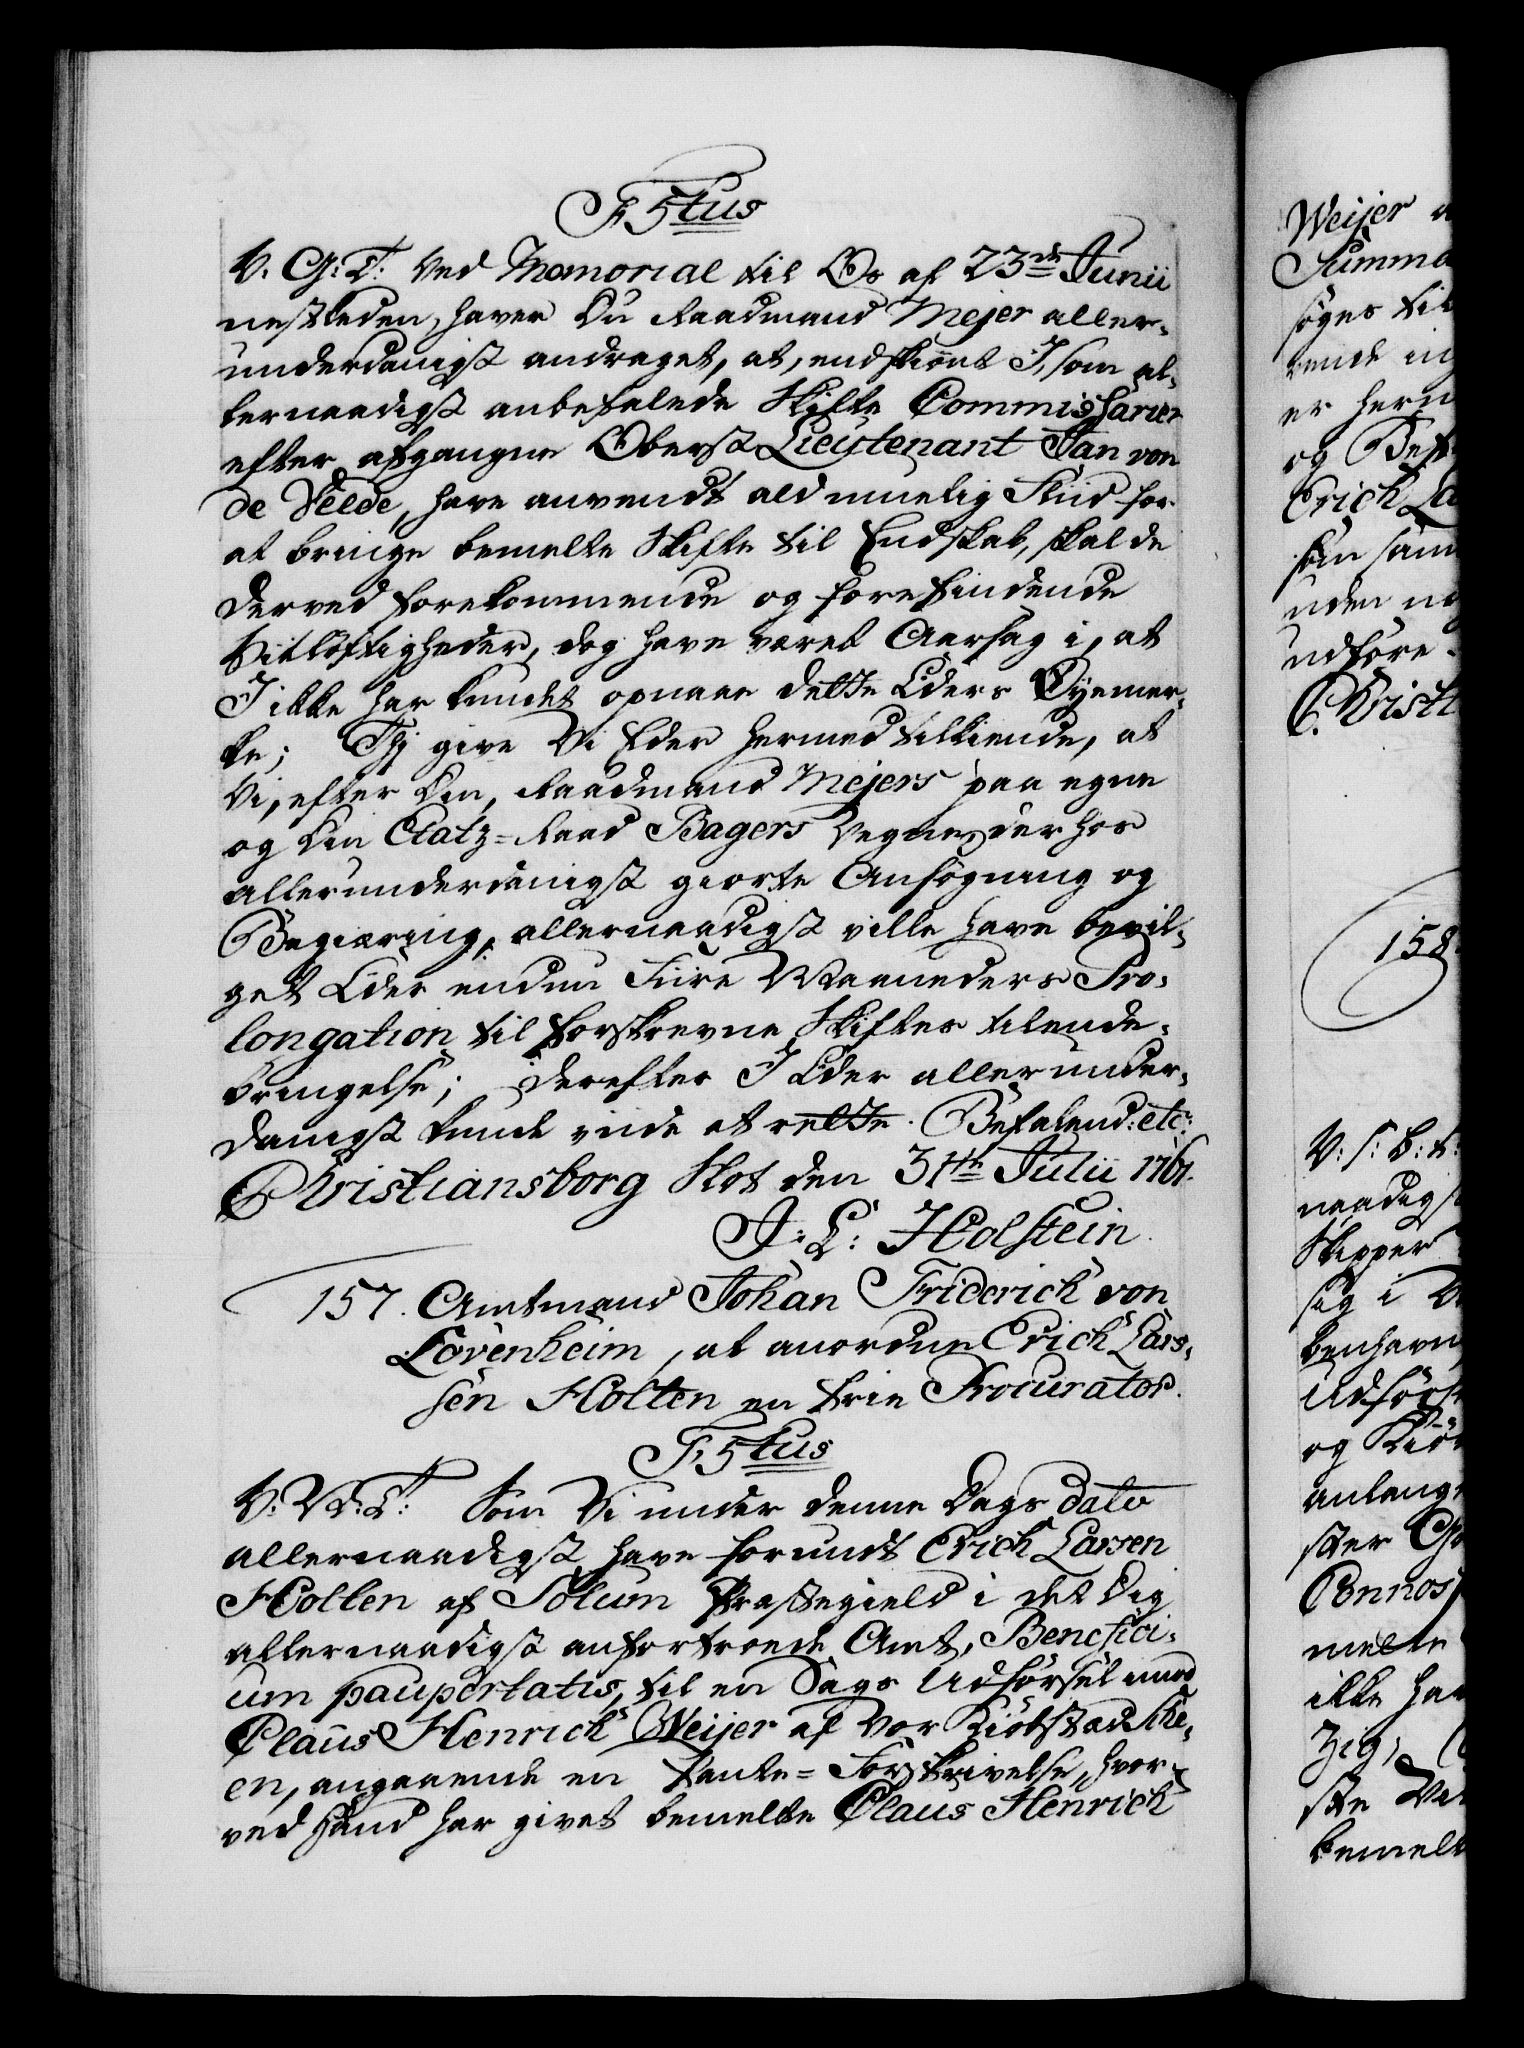 F 5tus
V. G: T: Ved Memorial til Os af 23de Junii
nestleden, haver Du Raadmand Mejer aller-
underdanigst andraget, at, endskiønt I, som al-
lernaadigst anbefalede Skifte Commissarier
efter afgangne Oberst Lieutenant Jan von
de Velde, have anvendt ald muelig Fliid for
at bringe bemelte Skifte til Endskab, skal de
derved forekommende og forefindende
Vitløftigheder, dog have været Aarsag i, at
I ikke har kundet opnaae dette Eders Øyemer-
ke; Thi give Vi Eder hermed tilkiende, at
Vi, efter Din, Raadmand Mejers paa egne
og Din Etatz-Raad Bagers Vegne, derhos
allerunderdanigst giorte Ansøgning og
Begiæring, allernaadigst ville have bevil-
get Eder endnu Fiire Maaneders Pro-
longation til forskrevne Skiftes tilende-
bringelse; derefter I Eder allerunder-
danigst kunde vide at rette. Befalend: etc:
Christiansborg Slot den 31te Julii 1761.
J: L: Holstein.
157. Amtmand Johan Friderich von
Lövenheim, at anordne Erich Lars-
sen Holten en frie Procurator.
F: 5tus
V: V: T: Som Vi under denne Dags dato
allernaadigst have forundt Erich Larsen
Holten af Solum Præstegield i det Dig
allernaadigst anfortroede Amt, Benefici-
um paupertatis, til en Sags Udførsel imod
Claus Henrich Weijer af Vor Kiøbstad Ske-
en, angaaende en Pante-Forskrivelse, hvor-
ved Hand har givet bemelte Claus Henrich
Weijer
Summa
søges til
rende
er herm
og Bef
Erich La
som
uden
udføre
Christi
158.
V: S: B: T:
naadigst
Skipper
sig i
benhavn
Udførs
og Kiø
anlang
ster
Connos
melte
ikke har
Zig,
ste
bemelt